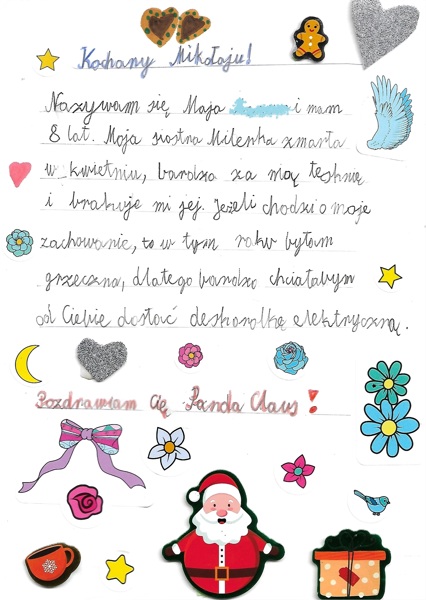 Kochany Mikołaju!
Nazywam się Maja i mam
8 lat. Moja siostra Milenka zmarła
w kwietniu, bardzo za nią tęsknię
i brakuje mi jej. Jeżeli chodzi o moje
zachowanie, to w tym roku byłam
grzeczna, dlatego bardzo chciałabym
od Ciebie dostać deskorolkę elektryczną.
Pozdrawiam Cię Santa Claus!